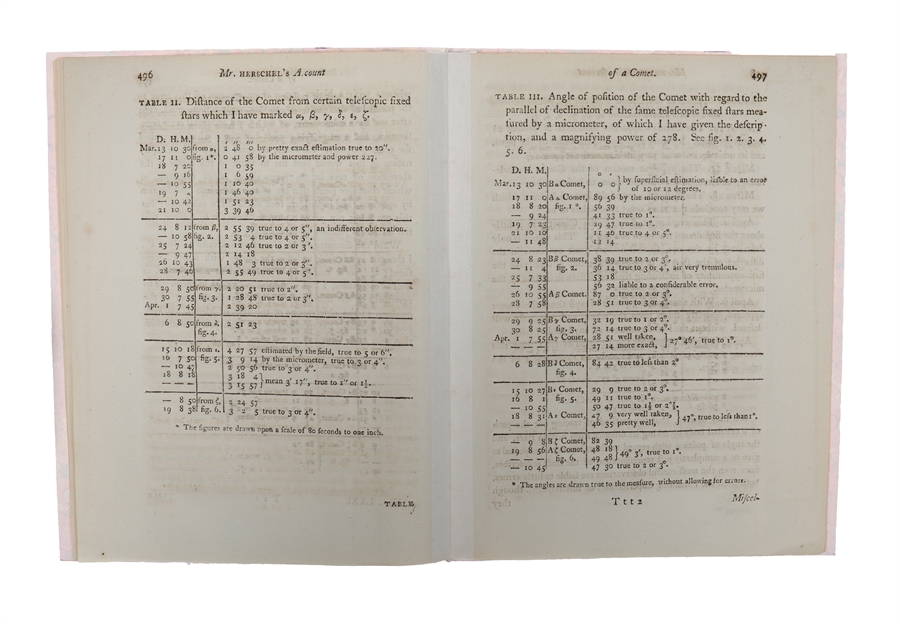 496 Mr. HERSCHEL'S Account
TABLE II. Diſtance of the Comet from certain teleſcopic fixed
ſtars which I have marked α, β, γ, δ, ε, ζ.
D. H. M.
Mar. 13 10 30 from α, 2 48 0 by pretty exact eſtimation true to 20″.
17 11 0 fig. 1*. 0 41 58 by the micrometer and power 227.
18 7 20 1 0 35
— 9 16 1 6 59
— 10 55 1 10 40
19 7 4 1 46 40
— 10 42 1 51 23
21 10 0 3 39 46
24 8 12 from β, 2 55 39 true to 4 or 5″, an indifferent obſervation.
— 10 58 fig. 2. 2 53 4 true to 4 or 5″.
25 7 24 2 12 46 true to 2 or 3″.
— 9 47 2 14 18
26 10 43 1 48 3 true to 2 or 3″.
28 7 46 2 55 49 true to 4 or 5″.
29 8 50 from γ. 2 20 51 true to 2″.
30 7 55 fig. 3. 1 28 48 true to 2 or 3″.
Apr. 1 7 45 2 39 20
6 8 50 from δ, 2 51 23
fig. 4.
15 10 18 from ε. 4 27 57 eſtimated by the field, true to 5 or 6″.
16 7 50 fig. 5. 3 9 14 by the micrometer, true to 3 or 4″.
— 10 47 2 50 56 true to 3 or 4″.
18 8 18 3 18 4 } mean 3′ 17″, true to 1″ or 1½.
— — — 3 15 57
— 8 50 from ζ, 2 24 57
19 8 38 fig. 6. 3 2 5 true to 3 or 4″.
* The figures are drawn upon a ſcale of 80 ſeconds to one inch.
TABLE
of a Comet. 497
TABLE III. Angle of poſition of the Comet with regard to the
parallel of declination of the ſame teleſcopic fixed ſtars mea-
ſured by a micrometer, of which I have given the deſcrip-
tion, and a magnifying power of 278. See fig. 1. 2. 3. 4.
5. 6.
D. H. M.
Mar. 13 10 30 B α Comet, 0 0 } by ſuperficial eſtimation, liable to an error
of 10 or 12 degrees.
17 11 0 A α Comet, 89 56 by the micrometer.
18 8 20 fig. 1 *. 56 39
— 9 24 41 33 true to 1°.
19 7 23 29 47 true to 1°.
21 10 10 11 46 true to 4 or 5°.
— 11 48 12 14
24 8 23 B β Comet, 38 39 true to 2 or 3°.
— 11 4 fig. 2. 36 14 true to 3 or 4°, air very tremulous.
25 7 33 53 18
— 9 55 56 32 liable to a conſiderable error.
26 10 55 A β Comet. 87 0 true to 2 or 3°.
28 7 58 28 51 true to 3 or 4°.
29 9 25 B γ Comet, 32 19 true to 1 or 2°.
30 8 25 fig. 3. 72 14 true to 3 or 4°.
Apr. 1 7 55 A γ Comet, 28 51 well taken, } 27° 46′, true to 1°.
— — — 27 14 more exact,
6 8 28 B δ Comet, 84 42 true to leſs than 2°
fig. 4.
15 10 27 B ε Comet, 29 9 true to 2 or 3°.
16 8 1 fig. 5. 49 11 true to 1°.
— 10 55 50 47 true to 1½ or 2°½.
18 8 31 A ε Comet, 47 9 very well taken, } 47°, true to leſs than 1°.
— — — 46 35 pretty well,
— 9 8 B ζ Comet, 82 39
19 8 56 A ζ Comet, 48 18 } 49° 3′, true to 1°.
— — — fig. 6. 49 48
— 10 45 47 30 true to 2 or 3°.
* The angles are drawn true to the meaſure, without allowing for errors.
T t t 2 Miſcel-